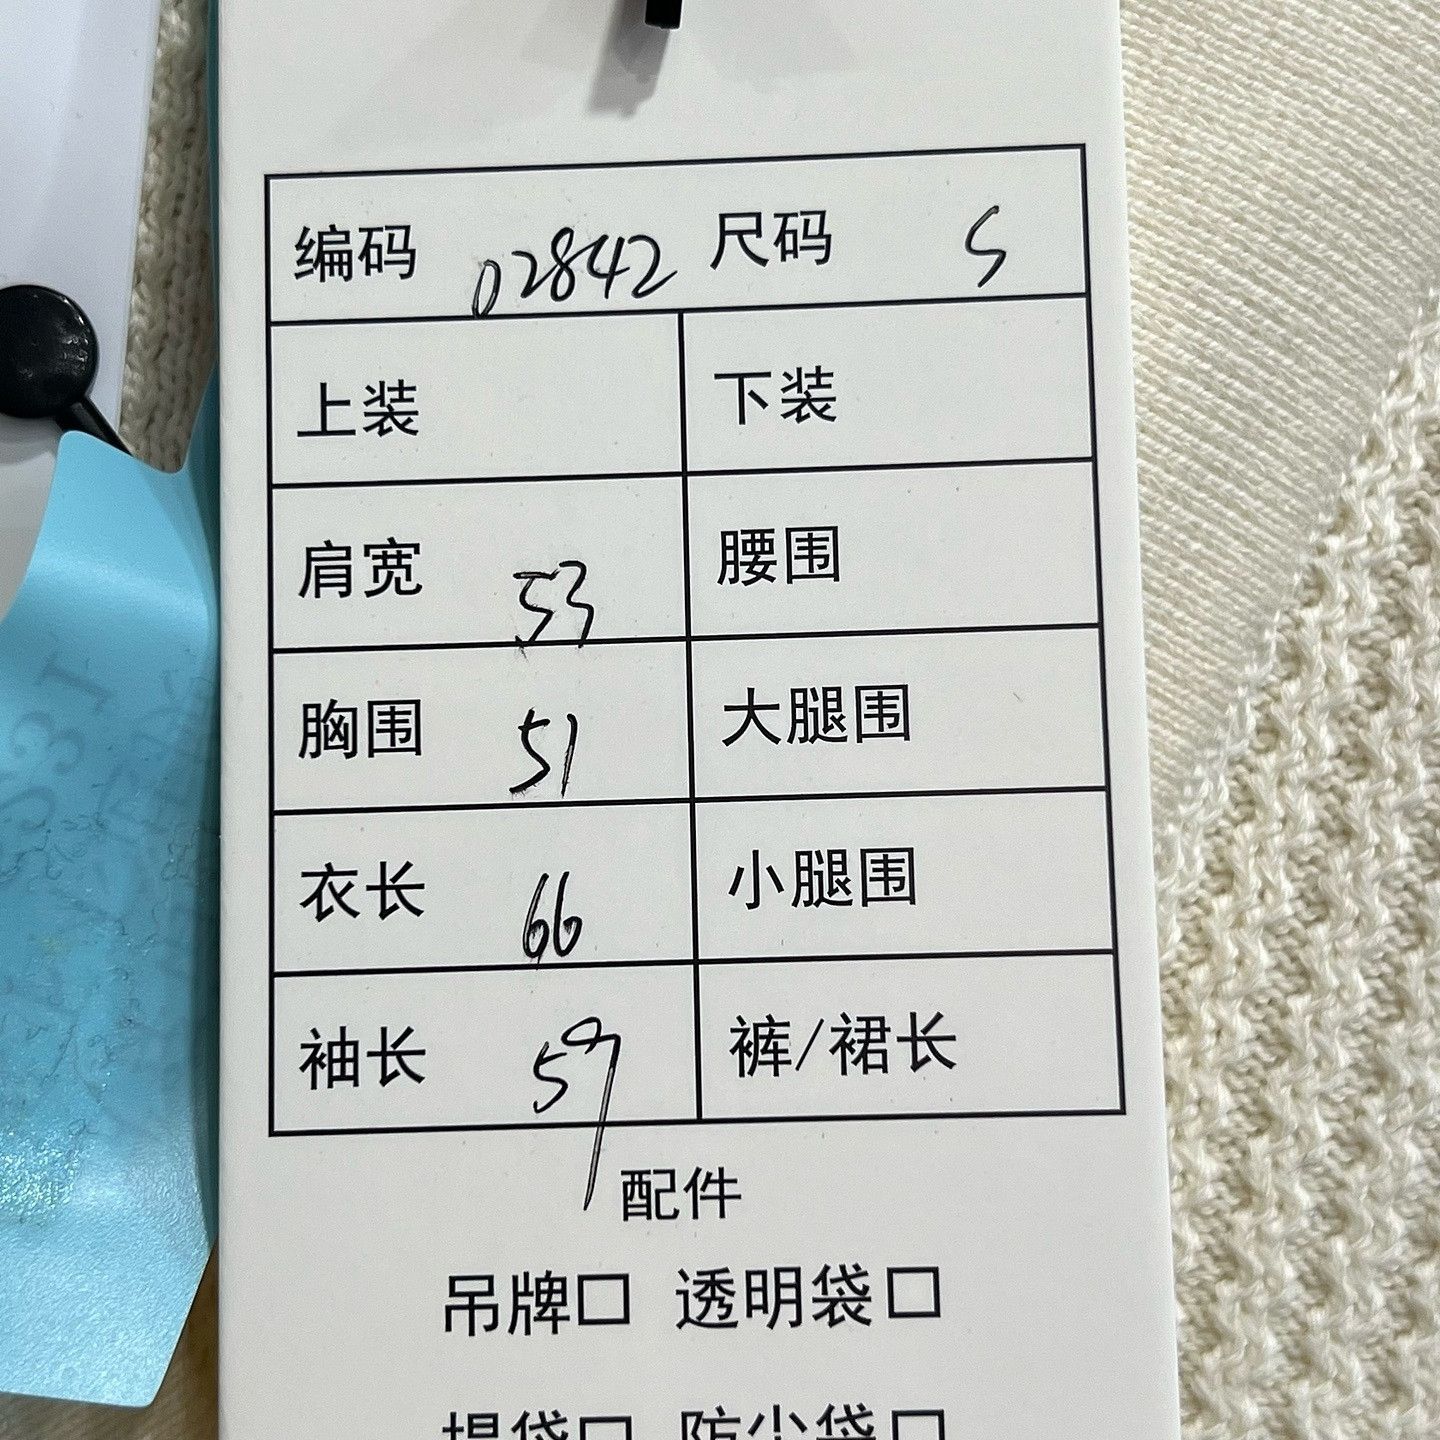 编码 02842 尺码 S
上装 下装
肩宽 53 腰围
胸围 51 大腿围
衣长 66 小腿围
袖长 59 裤/裙长
配件
吊牌□ 透明袋□
提袋□ 防尘袋□